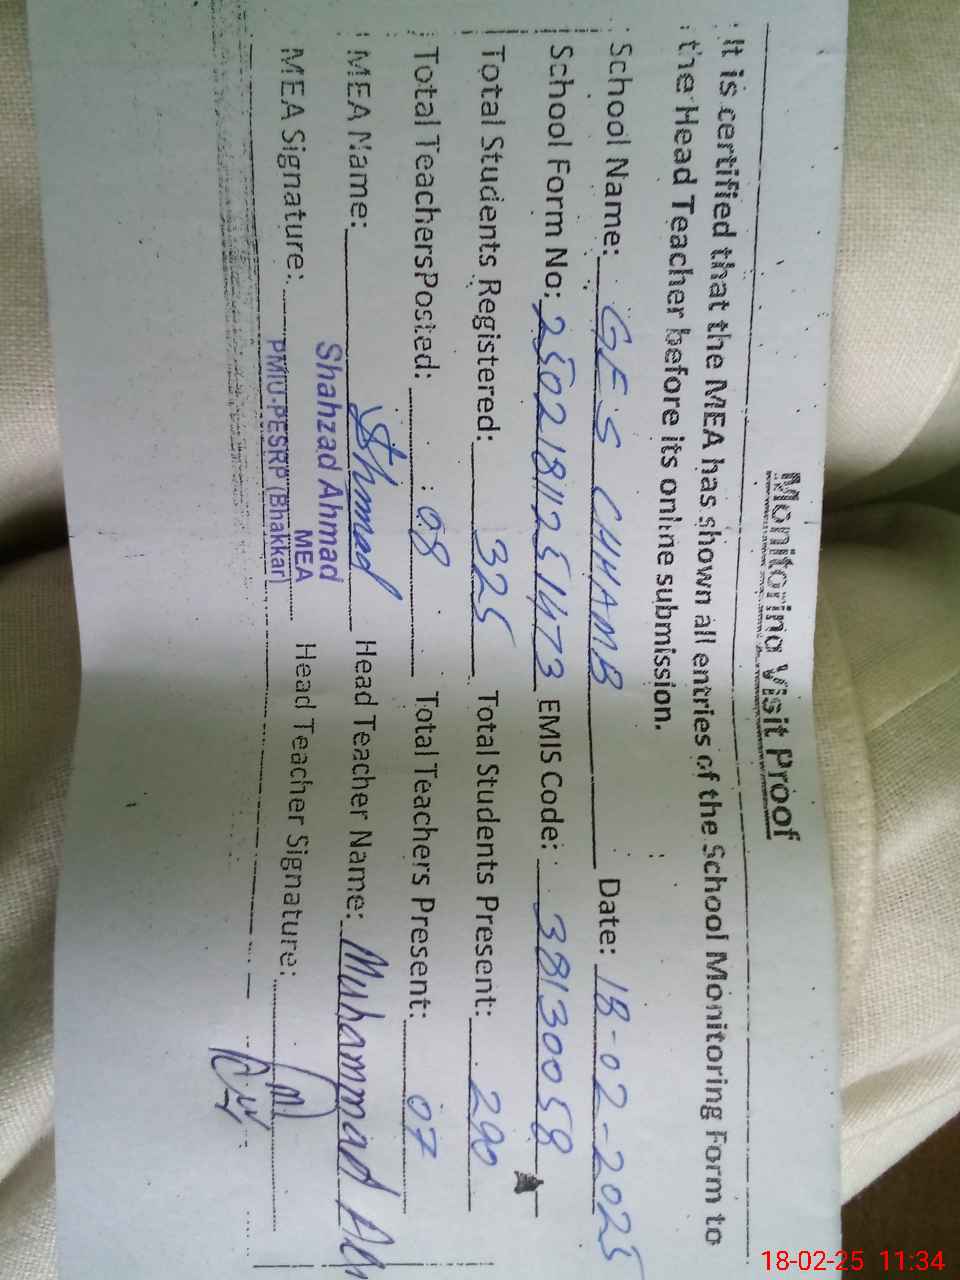 Monitoring Visit Proof
It is certified that the MEA has shown all entries of the School Monitoring Form to
the Head Teacher before its online submission.
School Name: GES CHHAMB Date: 18-02-2025
School Form No: 25021811251473 EMIS Code: 38130058
Total Students Registered: 325 Total Students Present: 290
Total TeachersPosted: 08 Total Teachers Present: 07
MEA Name: Ahmad Head Teacher Name: Muhammad
MEA Signature: Head Teacher Signature:
Shahzad Ahmad
MEA
PMIU-PESRP (Bhakkar)
18-02-25 11:34